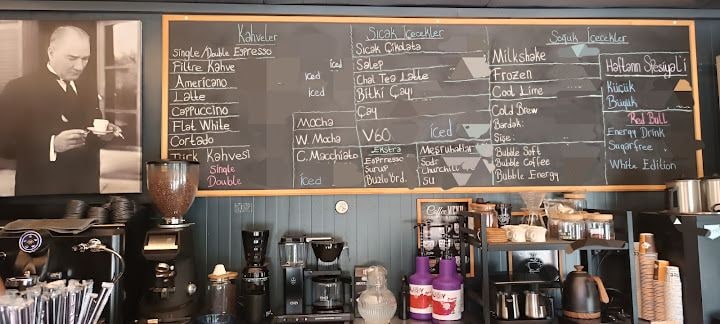 Kahveler
Single/Double Espresso
Filtre Kahve
Americano
Latte
Cappuccino
Flat White
Cortado
Türk Kahvesi
Single
Double
iced
iced
Mocha
W. Mocha
C. Macchiato
iced
Sıcak İçecekler
Sıcak Çikolata
Salep
Chai Tea Latte
Bitki Çayı
Çay
V60 iced
Ekstra
Espresso
Şurup
Buzlu Brd.
Meşrubatlar
Soda
Churchill
Su
Soğuk İçecekler
Milkshake
Frozen
Cool Lime
Cold Brew
Bardak:
Şişe:
Bubble Soft
Bubble Coffee
Bubble Energy
Haftanın Spesiyali
Küçük
Büyük
Red Bull
Energy Drink
Sugarfree
White Edition
Coffee MENU